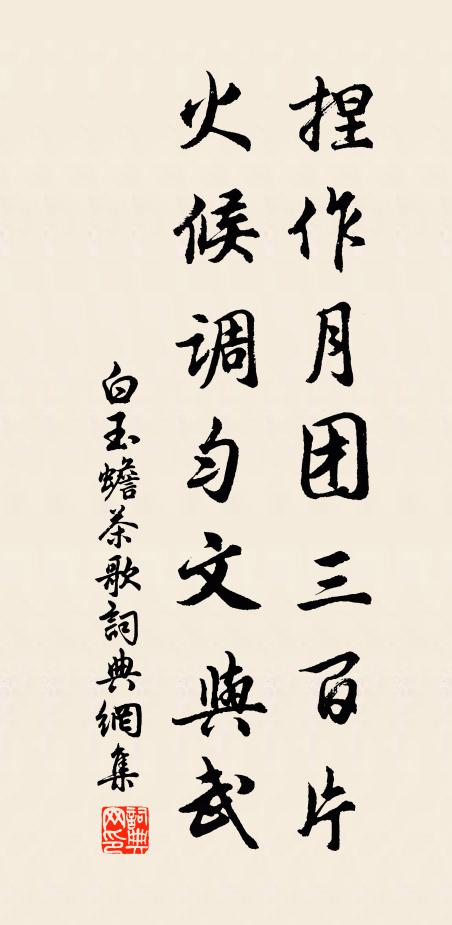 捏作月团三百片
火候調匀文與武
白玉蟾茶歌詞典網集
詞典网印